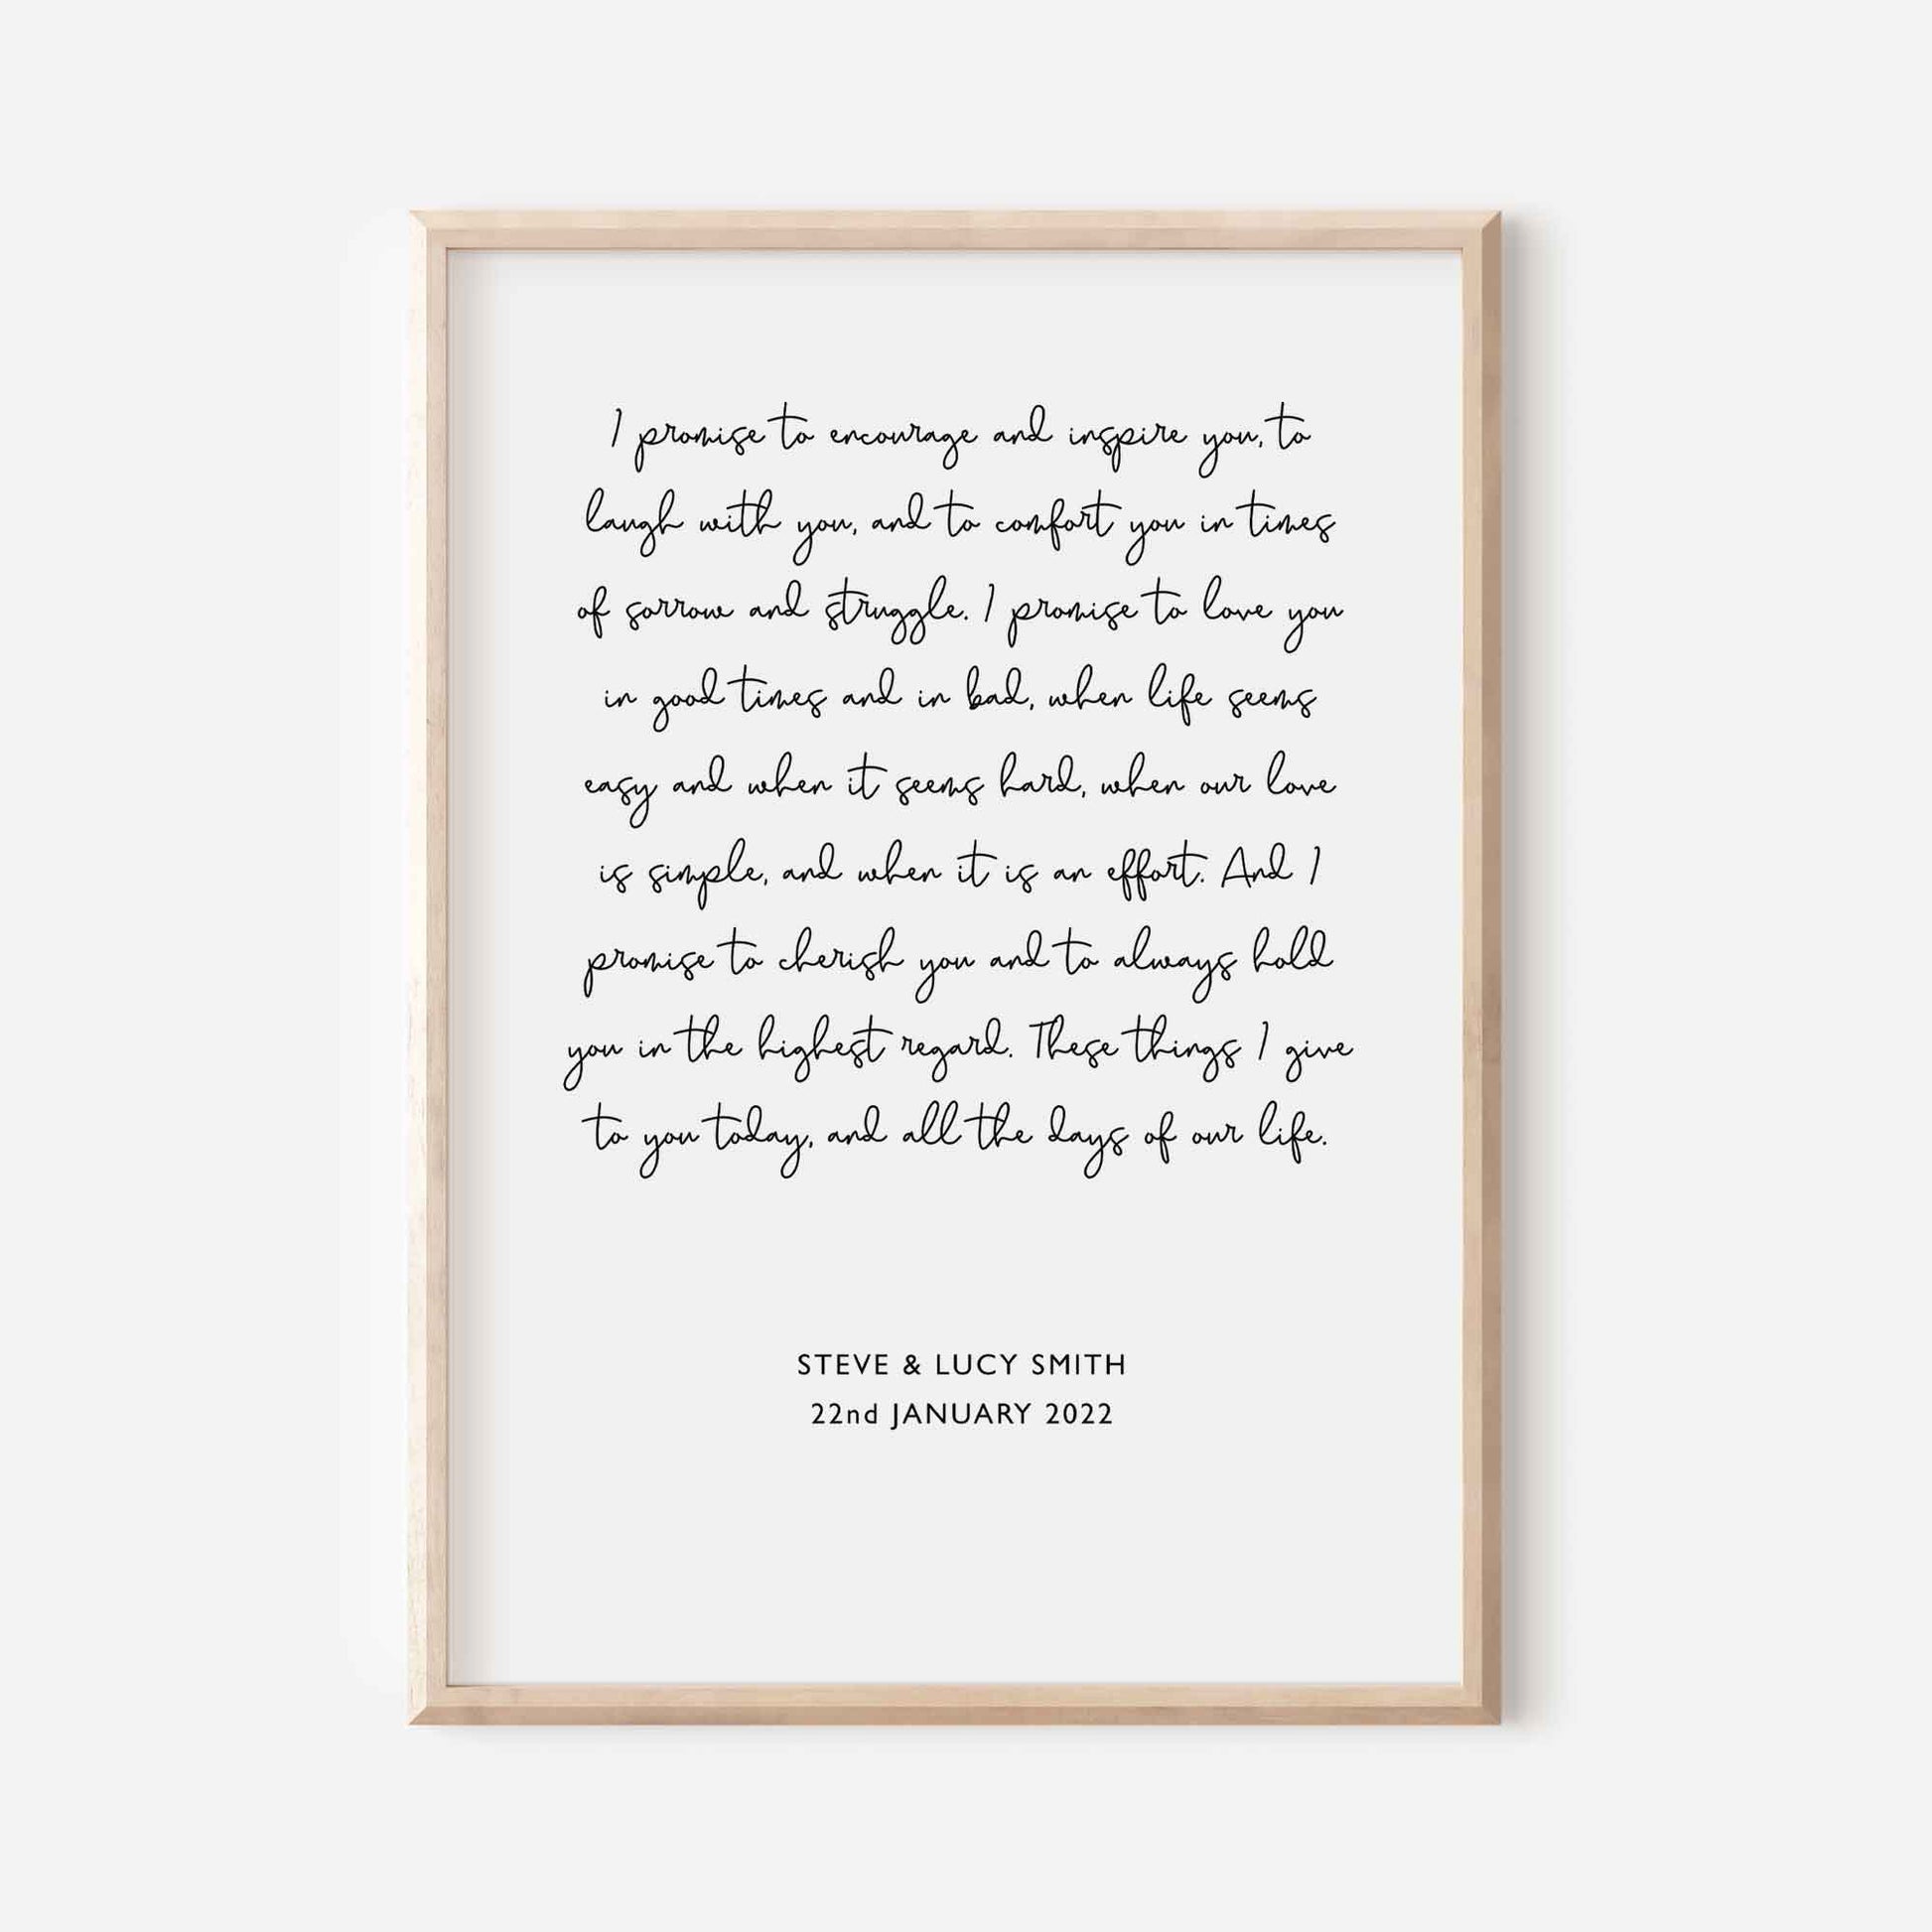 I promise to encourage and inspire you, to
laugh with you, and to comfort you in times
of sorrow and struggle. I promise to love you
in good times and in bad, when life seems
easy and when it seems hard, when our love
is simple, and when it is an effort. And I
promise to cherish you and to always hold
you in the highest regard. These things I give
to you today, and all the days of our life.
STEVE & LUCY SMITH
22nd JANUARY 2022